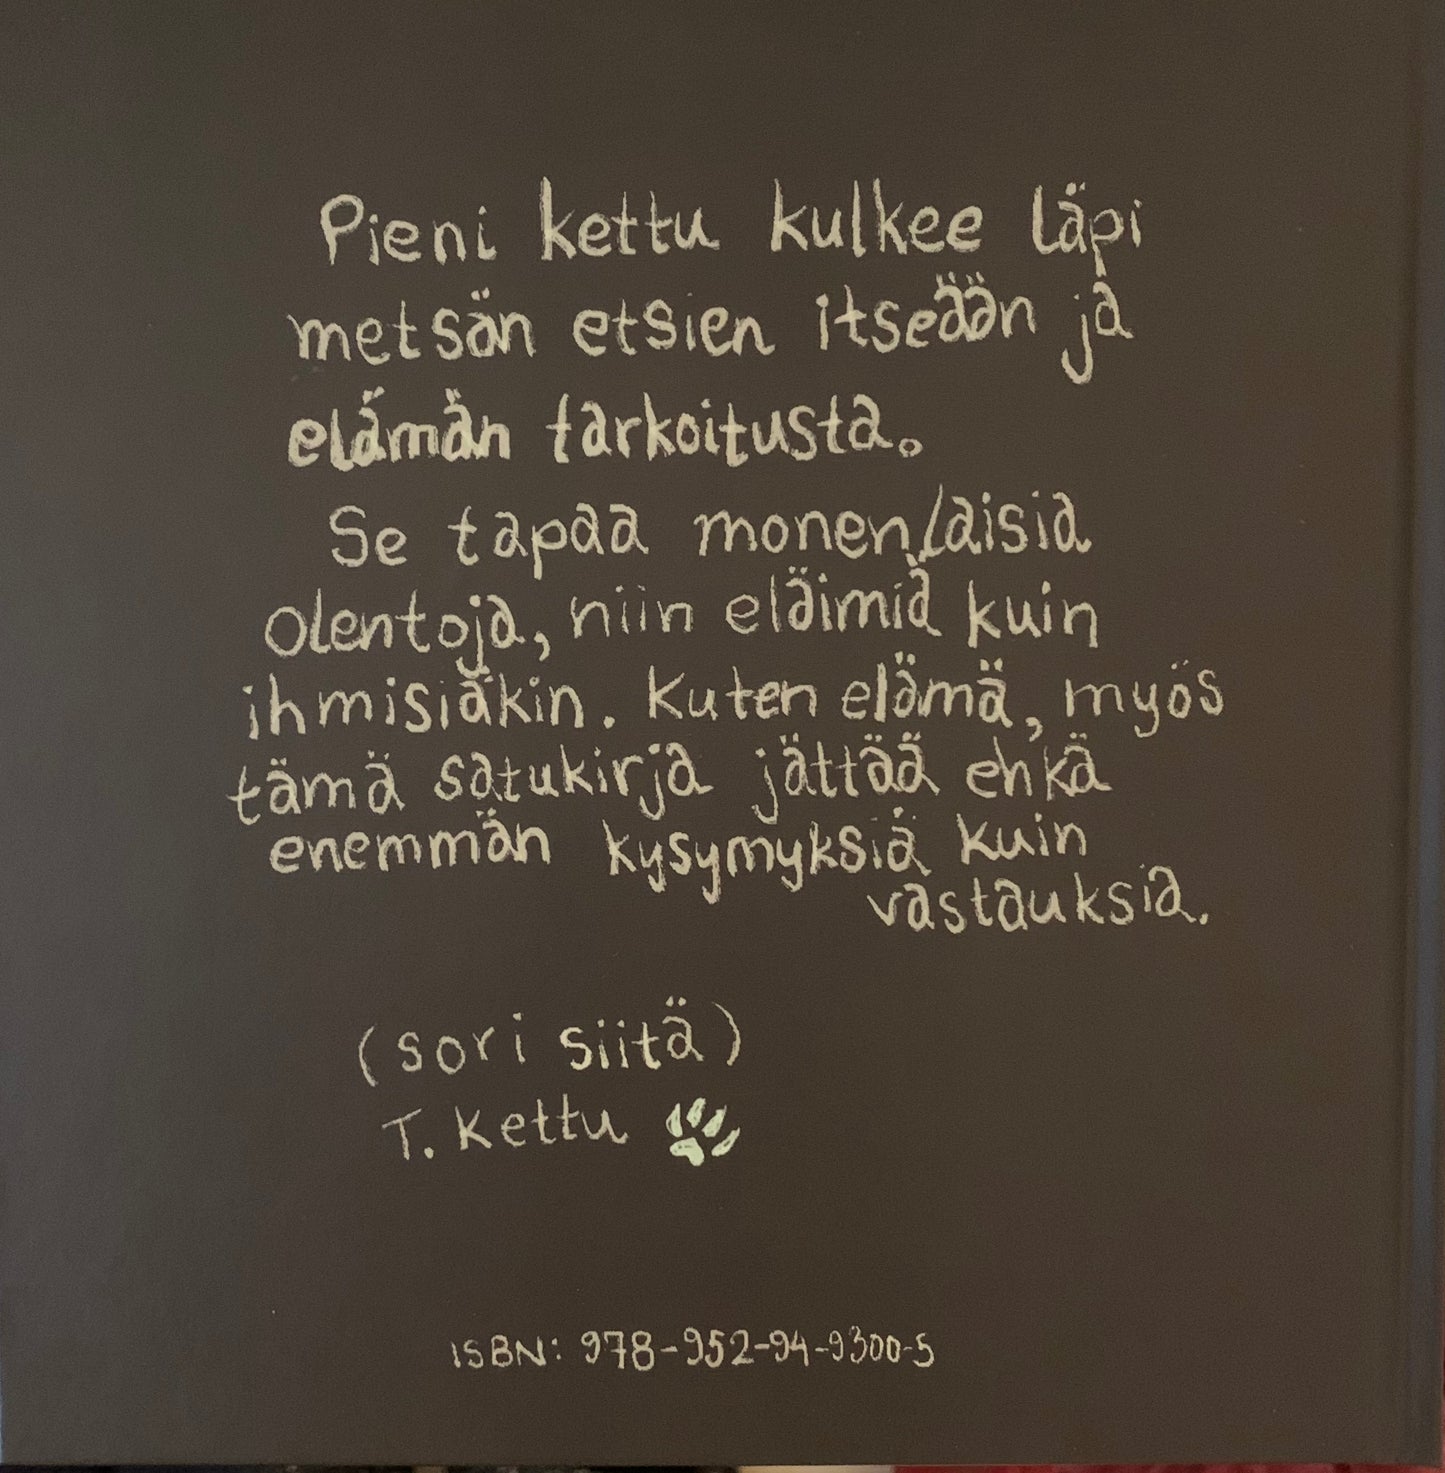 Pieni kettu kulkee läpi
metsän etsien itseään ja
elämän tarkoitusta.
Se tapaa monenlaisia
olentoja, niin eläimiä kuin
ihmisiäkin. Kuten elämä, myös
tämä satukirja jättää ehkä
enemmän kysymyksiä kuin
vastauksia.
(sori siitä)
T. Kettu
ISBN: 978-952-94-9300-5